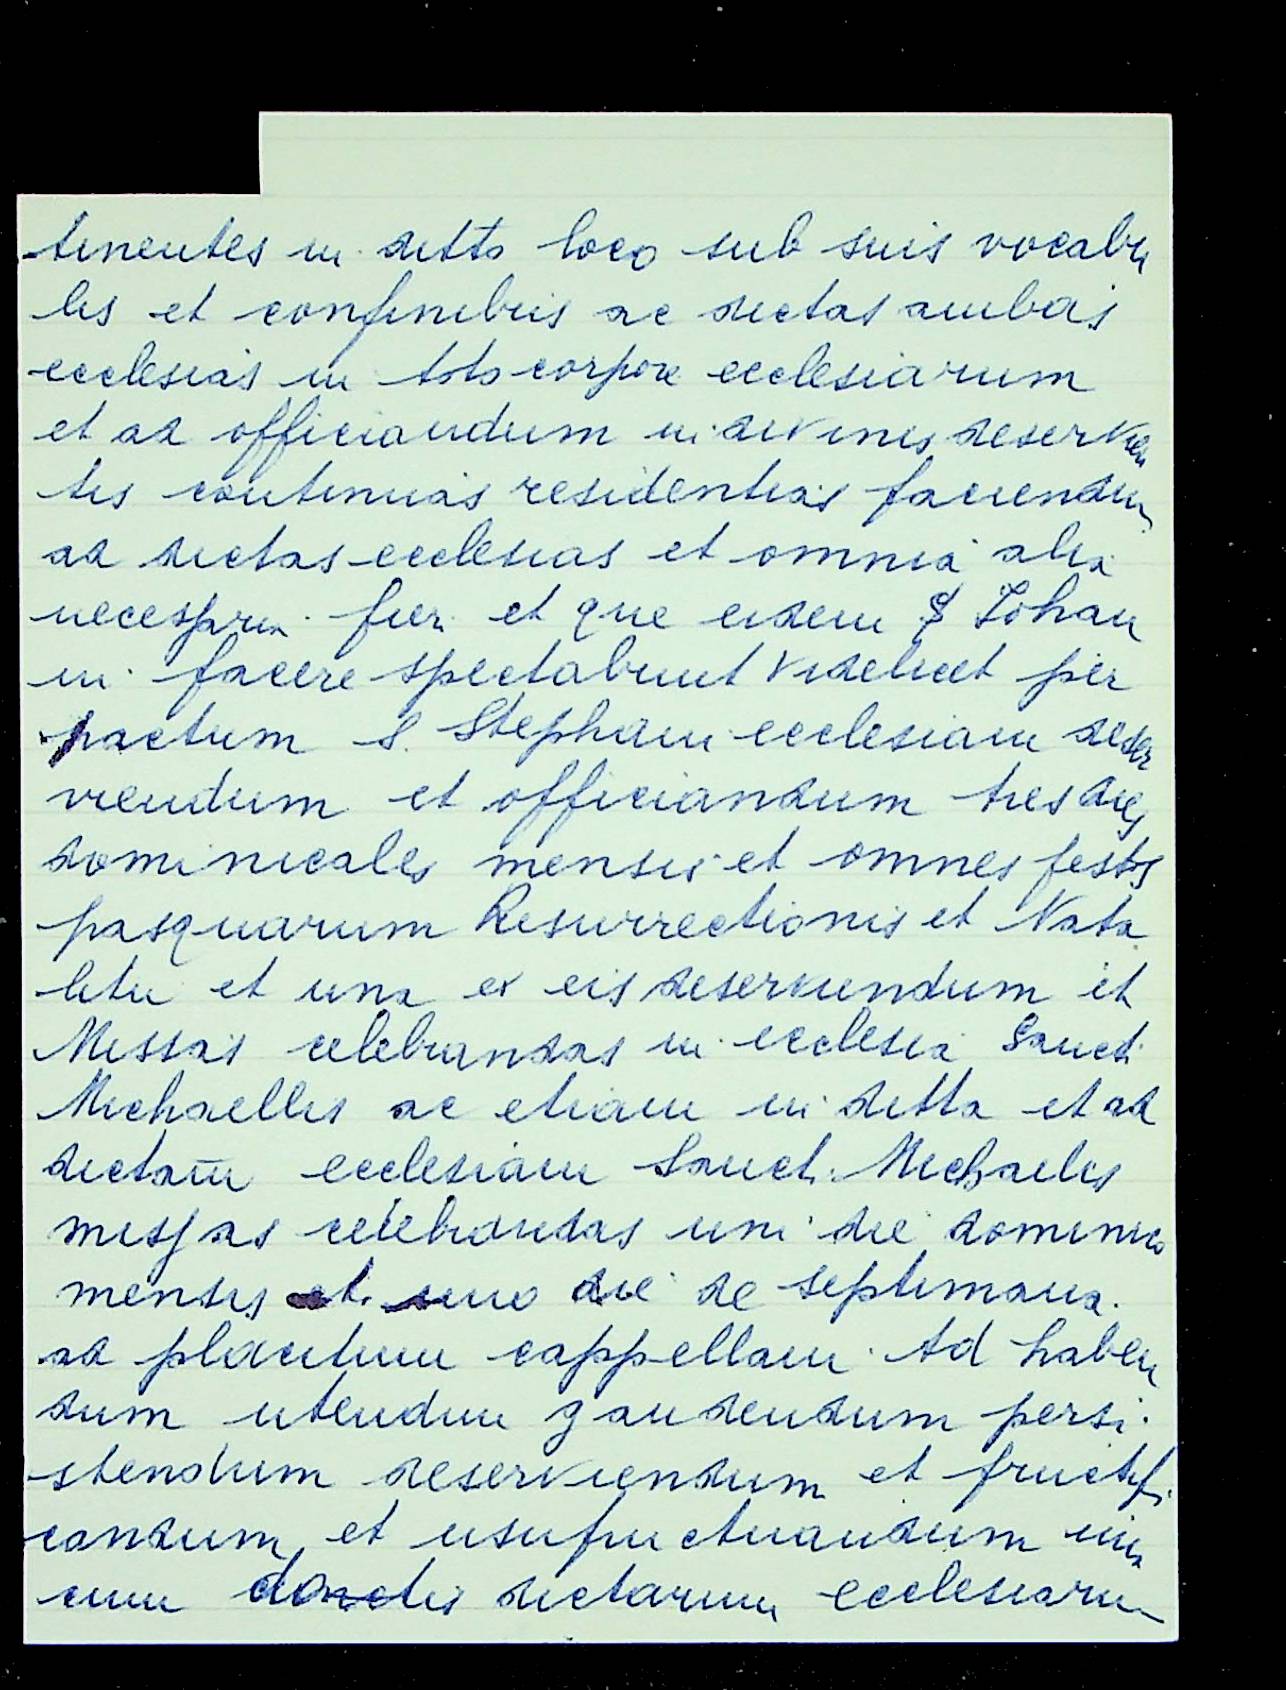 tinentes in ditto loco sub suis vocabu
lis et confinibus ac dictas ambas
ecclesias in toto corpore ecclesiarum
et ad officiandum in divinis deservien
tis continuas residentias faciendum
ad dictas ecclesias et omnia alia
necessaria fieri et que eidem Johan
ni facere spectabunt videlicet per
pactum S. Stephani ecclesiam deser
viendum et officiandum tres dies
dominicales mensis et omnes festos
pasquarum Resurrectionis et Nata
litii et una ex eis deserviendum et
Missas celebrandas in ecclesia Sancti
Michaellis ac etiam in ditta et ad
dictam ecclesiam Sancti Michaelis
missas celebrandas uni die dominico
mensis et uno die de septimana
ad placitum cappellani. Ad haben
dum utendum gaudendum persi
stendum deserviendum et fructifi
candum et usufructuandum una
cum dictis dictarum ecclesiarum